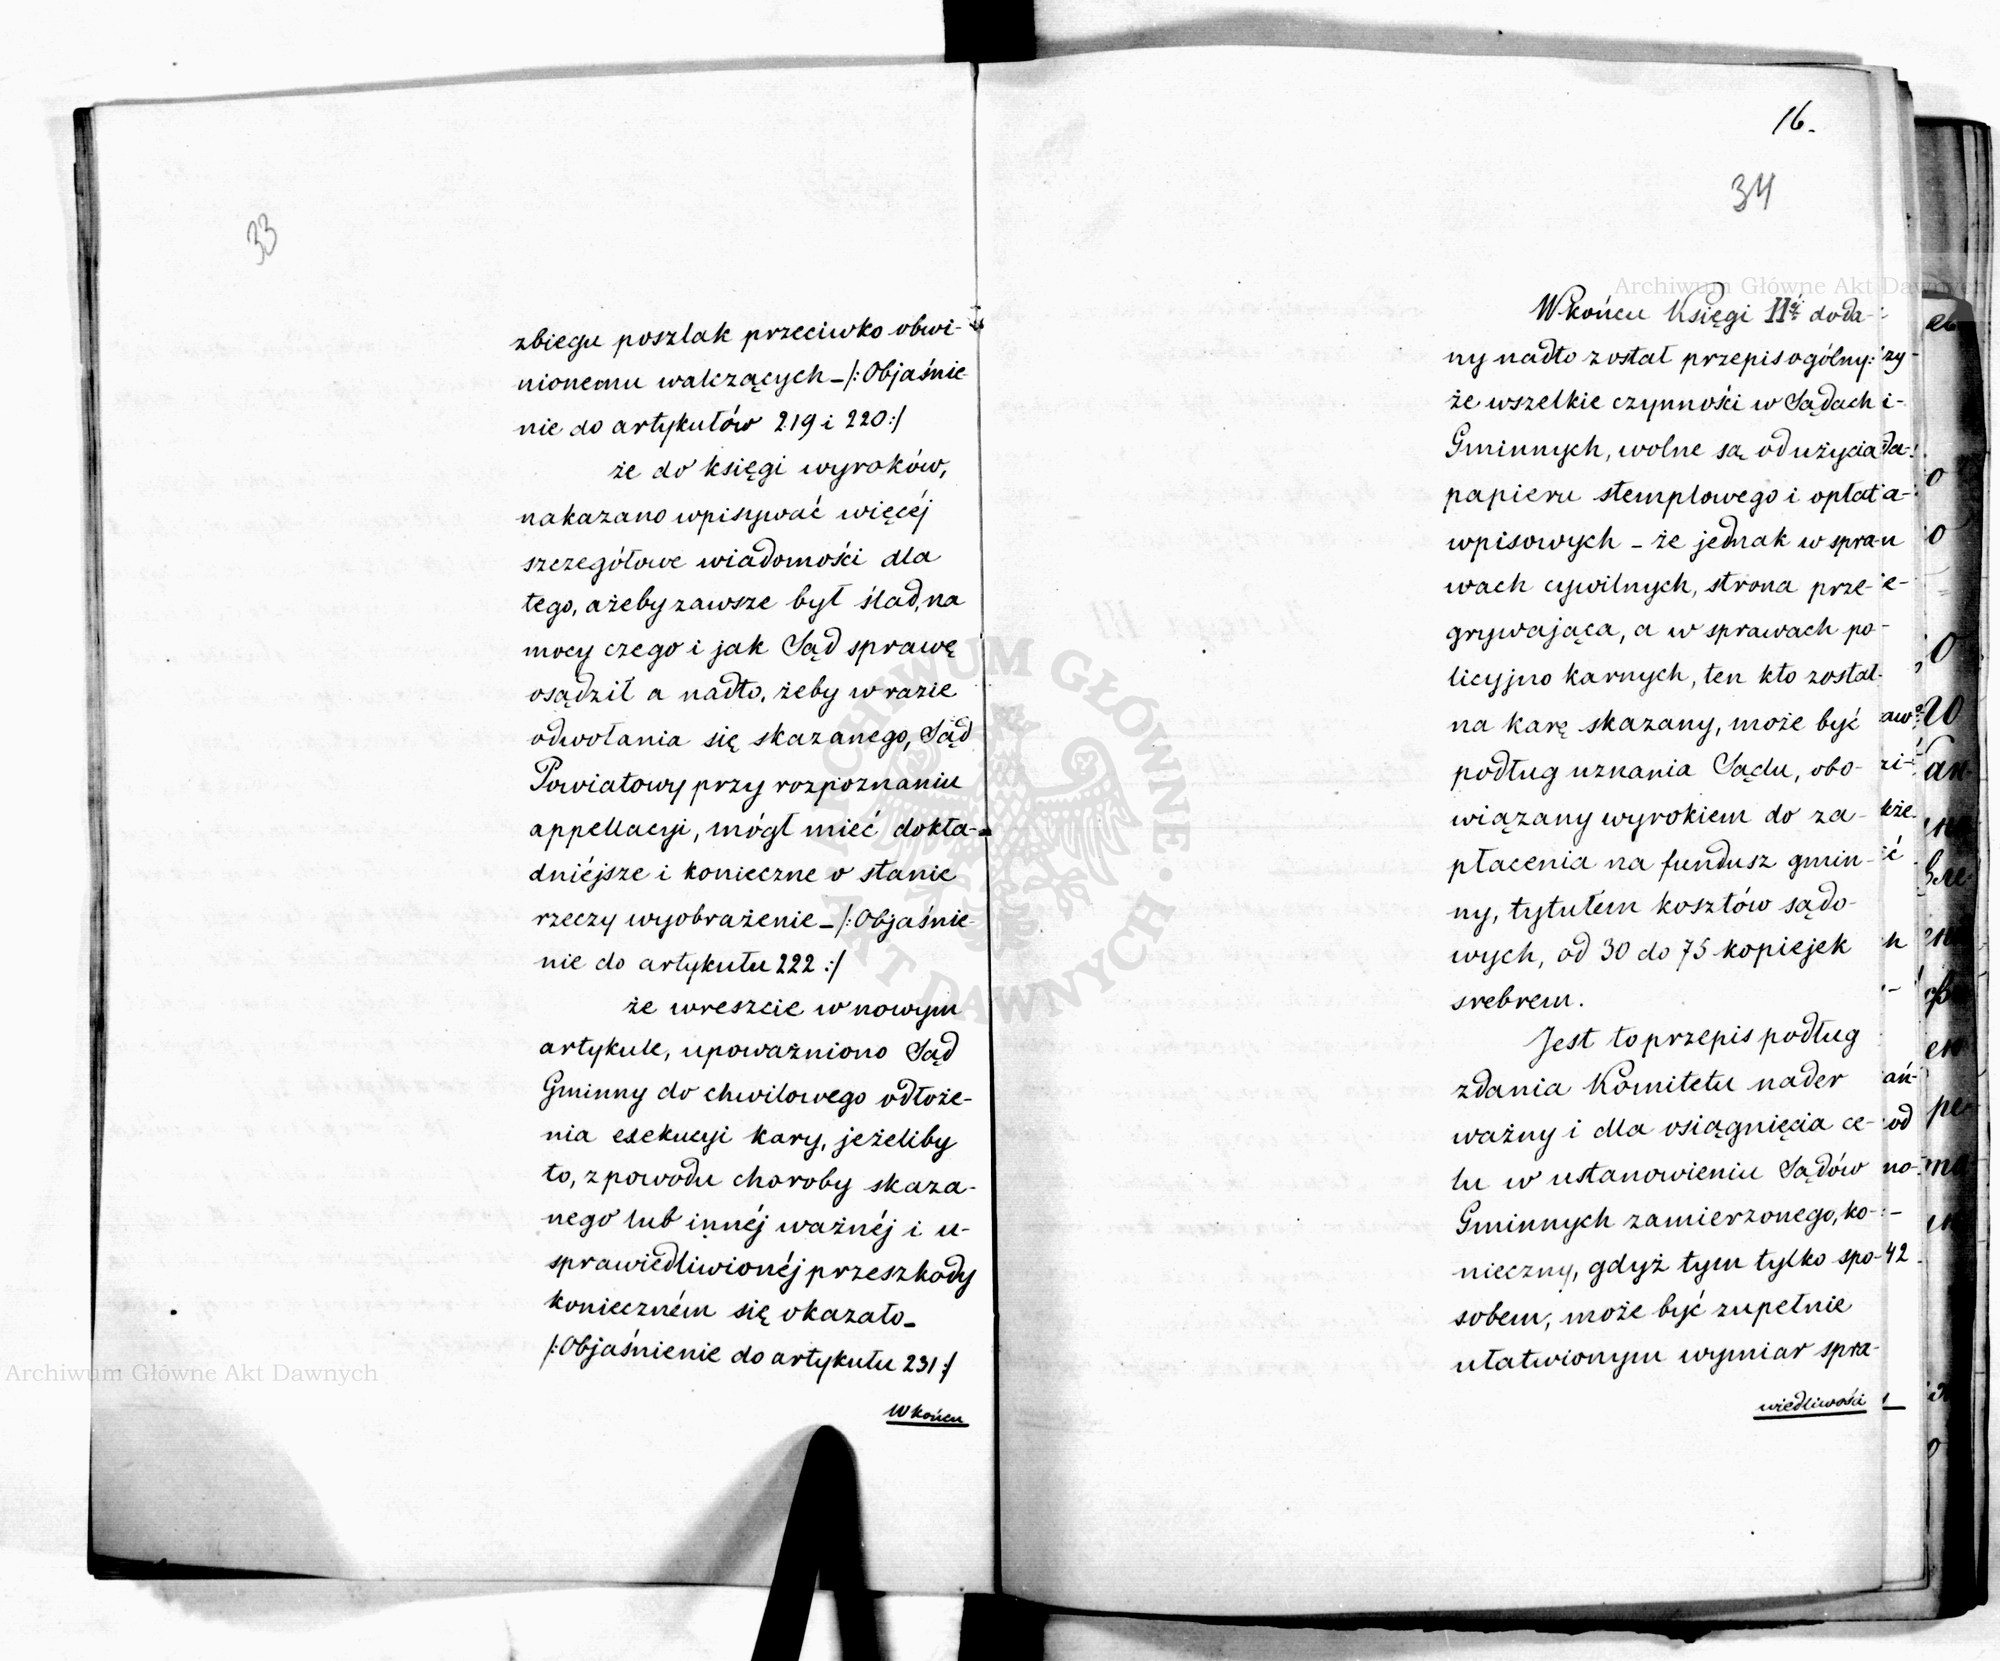 33
zbiegu poszlak przeciwko obwi-
nionemu walczących – /: Objaśnie-
nie do artykułów 219 i 220 :/
że do księgi wyroków,
nakazano wpisywać więcéj
szczegółowe wiadomości dla
tego, ażeby zawsze był ślad, na
mocy czego i jak Sąd sprawę
osądził a nadto, żeby w razie
odwołania się skazanego, Sąd
Powiatowy przy rozpoznaniu
appellacyi, mógł mieć dokła-
dniéjsze i konieczne o stanie
rzeczy wyobrażenie – /: Objaśnie-
nie do artykułu 222 :/
że wreszcie w nowym
artykule, upoważniono Sąd
Gminny do chwilowego odłoże-
nia exekucyi kary, jeżeliby
to, z powodu choroby skaza-
nego lub innéj ważnéj i u-
sprawiedliwionéj przeszkody
konieczném się okazało –
/: Objaśnienie do artykułu 231 :/
W końcu
16.
34
W końcu Księgi IIéj doda-
ny nadto został przepis ogólny:
że wszelkie czynności w Sądach
Gminnych, wolne są od użycia
papieru stemplowego i opłat
wpisowych – że jednak w spra-
wach cywilnych, strona prze-
grywająca, a w sprawach po-
licyjno karnych, ten kto został
na karę skazany, może być
podług uznania Sądu, obo-
wiązany wyrokiem do za-
płacenia na fundusz gmin-
ny, tytułem kosztów sądo-
wych, od 30 do 75 kopiejek
srebrem.
Jest to przepis podług
zdania Komitetu nader
ważny i dla osiągnięcia ce-
lu w ustanowieniu Sądów
Gminnych zamierzonego, ko-
nieczny, gdyż tym tylko spo-
sobem, może być zupełnie
ułatwionym wymiar spra-
wiedliwości
Archiwum Główne Akt Dawnych
ARCHIWUM GŁÓWNE AKT DAWNYCH
Archiwum Główne Akt Dawnych